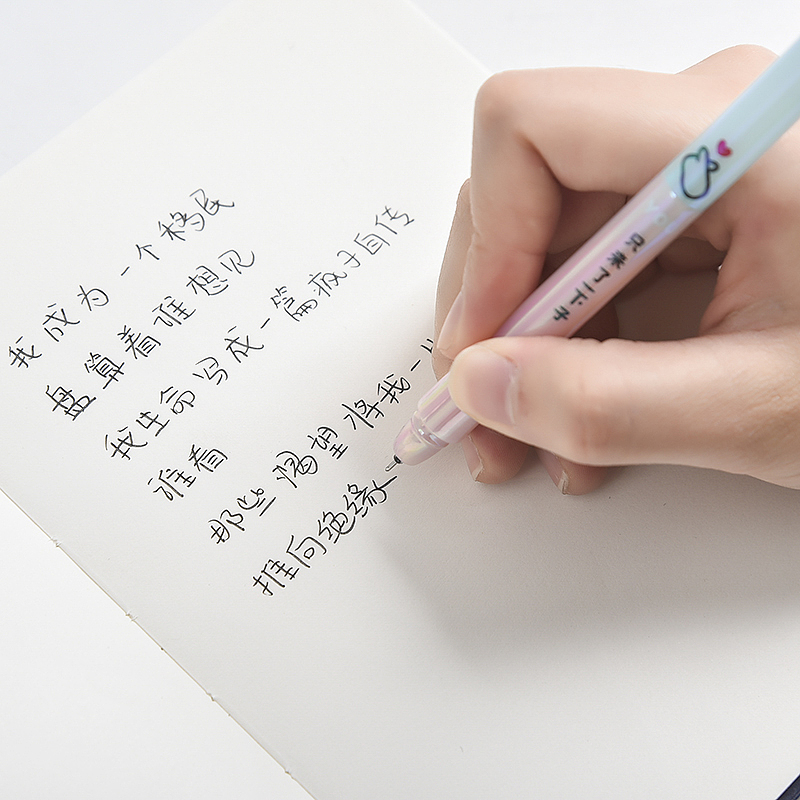 我成为一个移民
盘算着谁想见
我生命写成一篇疯子自传
谁看
那些渴望将我一
推向绝缘
只来了一下子